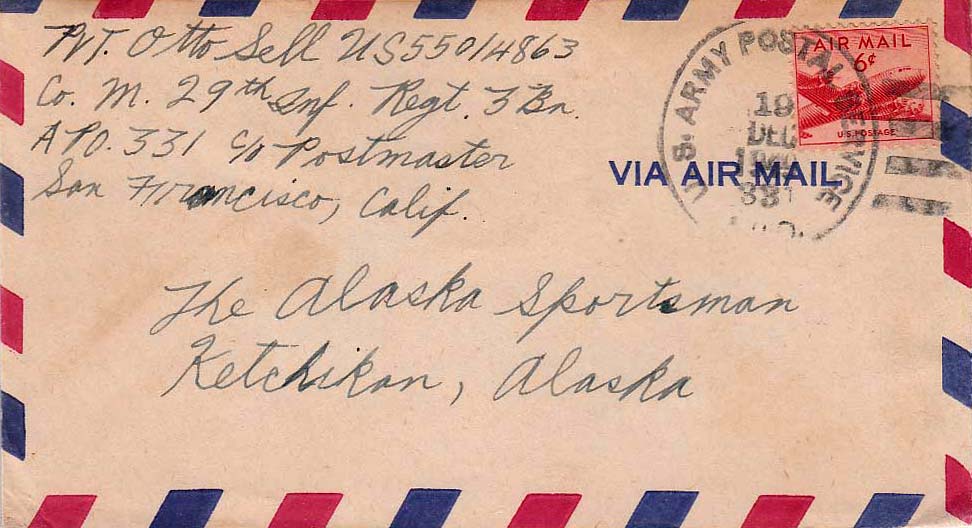 Pvt. Otto Sell US55014863
Co. M. 29th Inf. Regt. 3 Bn.
APO. 331 c/o Postmaster
San Francisco, Calif.
U.S. ARMY POSTAL SERVICE
19
DEC
331
AIR MAIL
6¢
U.S. POSTAGE
VIA AIR MAIL
The Alaska Sportsman
Ketchikan, Alaska